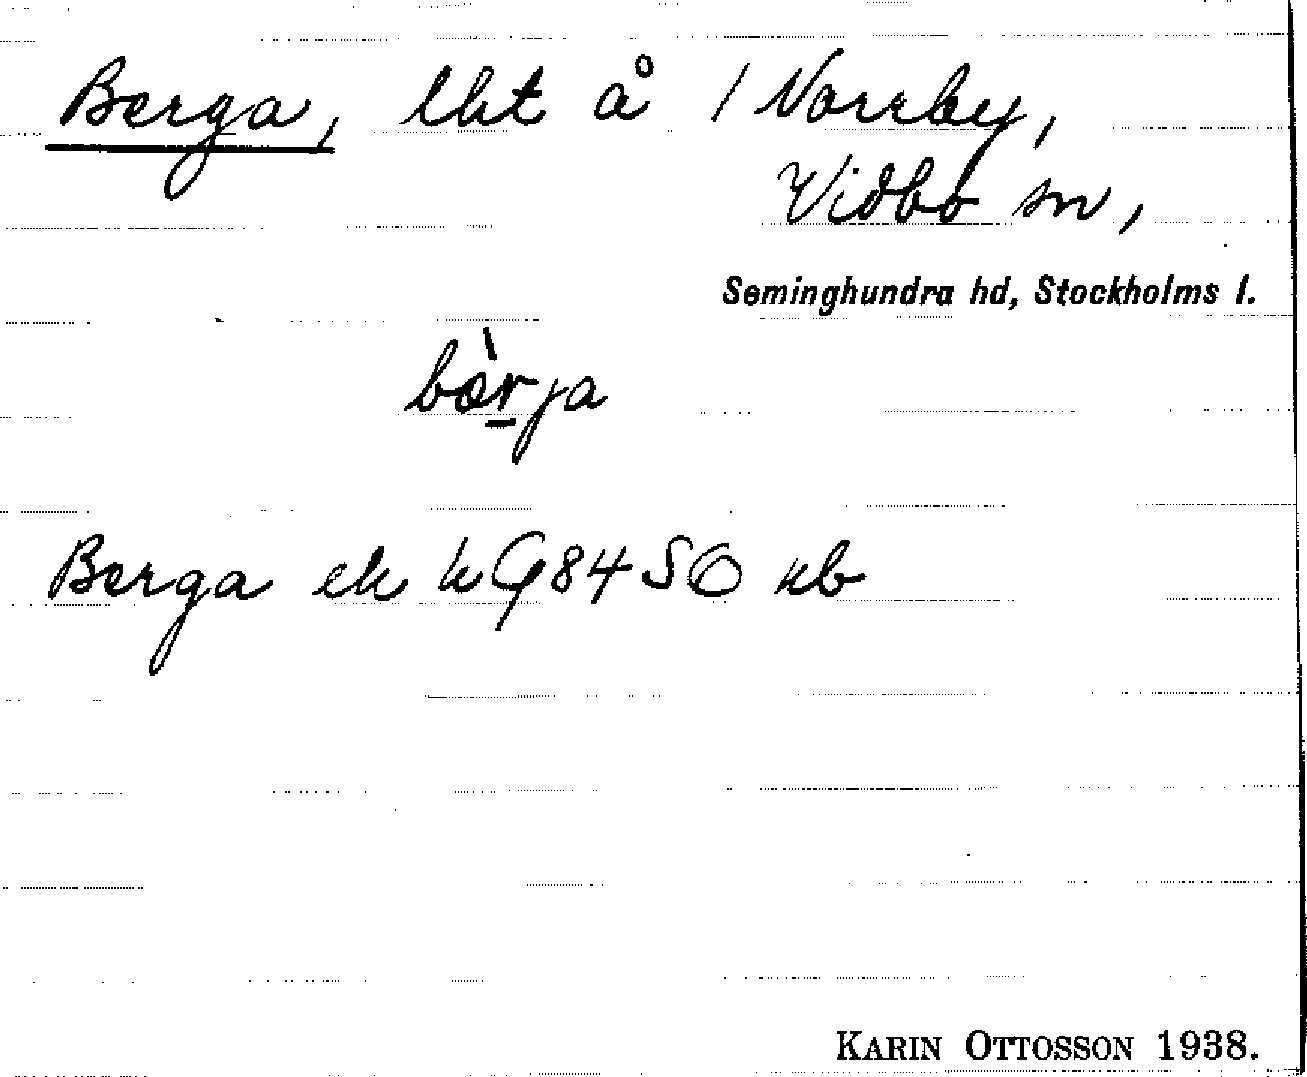 Berga, lht å / Norrby,
Vidbo sn,
Seminghundra hd, Stockholms l.
bær̠̀ja
Berga ek kG84SO nb
KARIN OTTOSSON 1938.